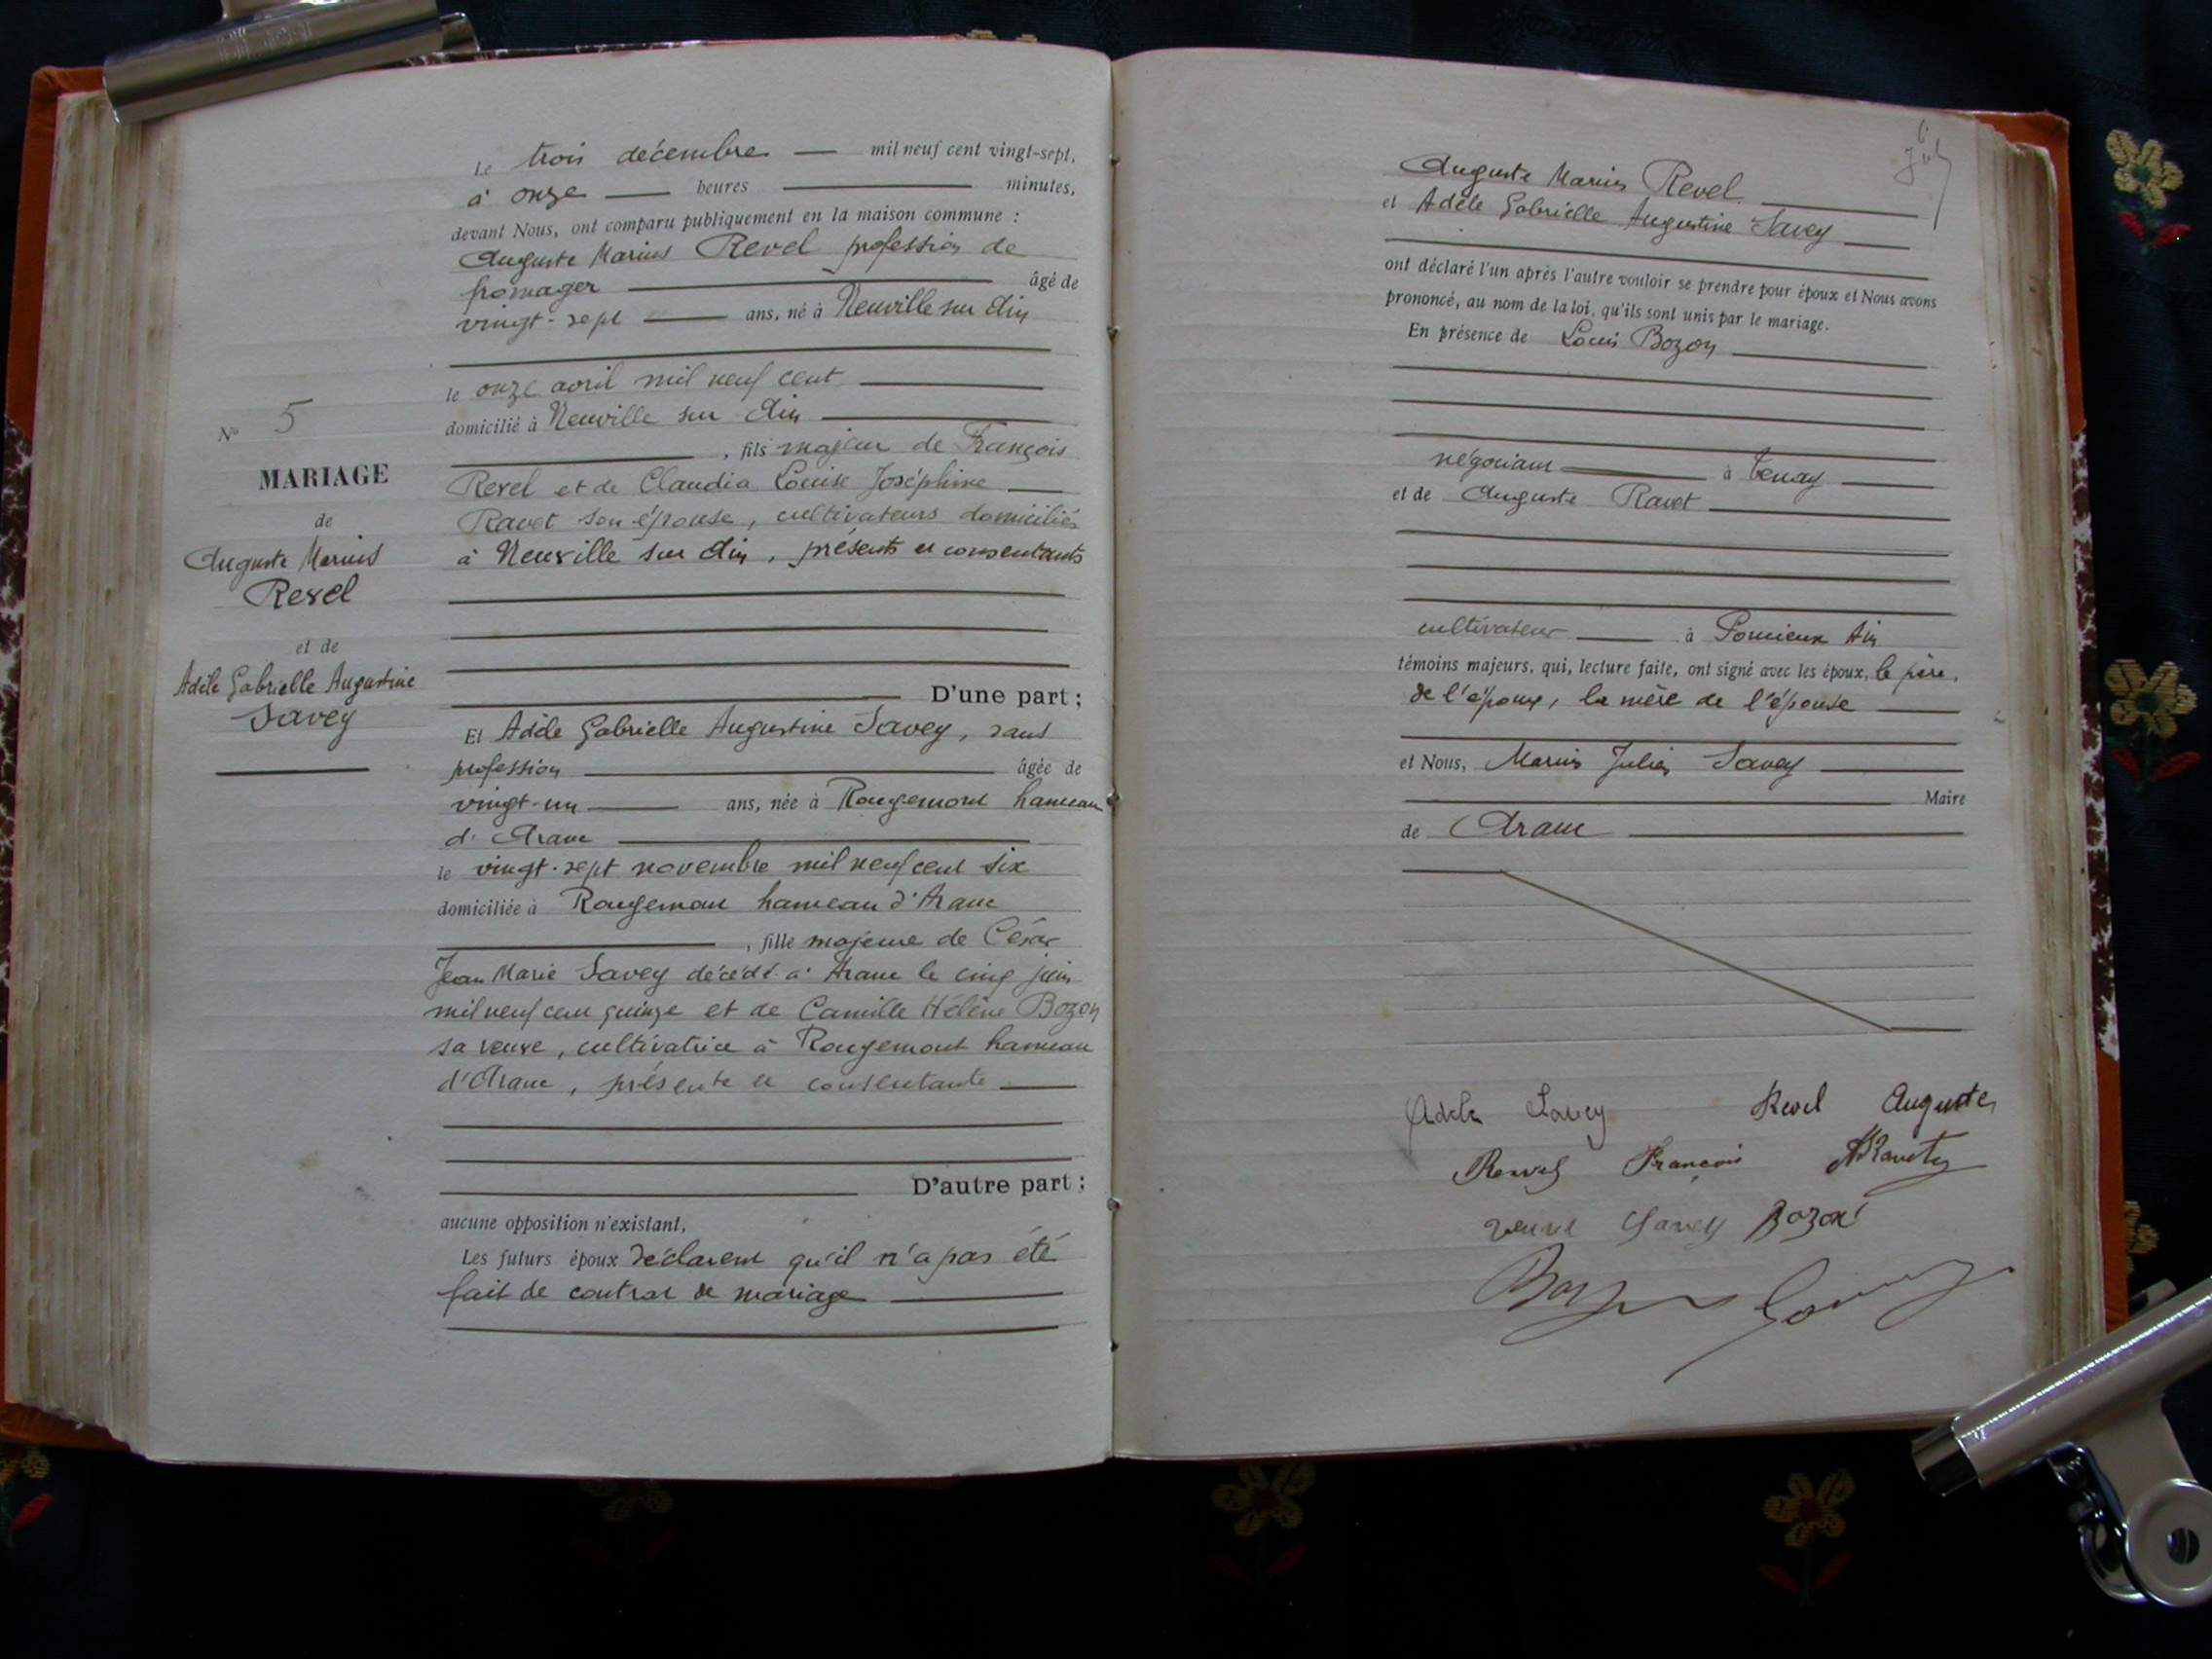 Le trois décembre mil neuf cent vingt-sept,
à onze heures minutes,
devant Nous, ont comparu publiquement en la maison commune :
Auguste Marius Revel profession de
fromager âgé de
vingt-sept ans, né à Neuville sur Ain
le onze avril mil neuf cent
domicilié à Neuville sur Ain
, fils majeur de François
Revel et de Claudia Louise Joséphine
Ravet son épouse, cultivateurs domiciliés
à Neuville sur Ain, présents et consentants
D'une part ;
Et Adèle Gabrielle Augustine Savey, sans
profession âgée de
vingt-un ans, née à Rougemont hameau
d'Aranc
le vingt-sept novembre mil neuf cent six
domiciliée à Rougemont hameau d'Aranc
, fille majeure de César
Jean Marie Savey décédé à Aranc le cinq juin
mil neuf cent quinze et de Camille Hélène Bozon
sa veuve, cultivatrice à Rougemont hameau
d'Aranc, présente et consentante
D'autre part ;
aucune opposition n'existant,
Les futurs époux déclarent qu'il n'a pas été
fait de contrat de mariage
N° 5
MARIAGE
de
Auguste Marius
Revel
et de
Adèle Gabrielle Augustine
Savey
Auguste Marius Revel
et Adèle Gabrielle Augustine Savey
ont déclaré l'un après l'autre vouloir se prendre pour époux et Nous avons
prononcé, au nom de la loi, qu'ils sont unis par le mariage.
En présence de Louis Bozon
négociant à Tenay
et de Auguste Ravet
cultivateur à Poncieux Ain
témoins majeurs, qui, lecture faite, ont signé avec les époux, le père,
de l'époux, la mère de l'épouse
et Nous, Marius Julien Savey
Maire
de Aranc
Adèle Savey Revel Auguste
Revel François ARavet
veuve Savey Bozon
Bozon Savey